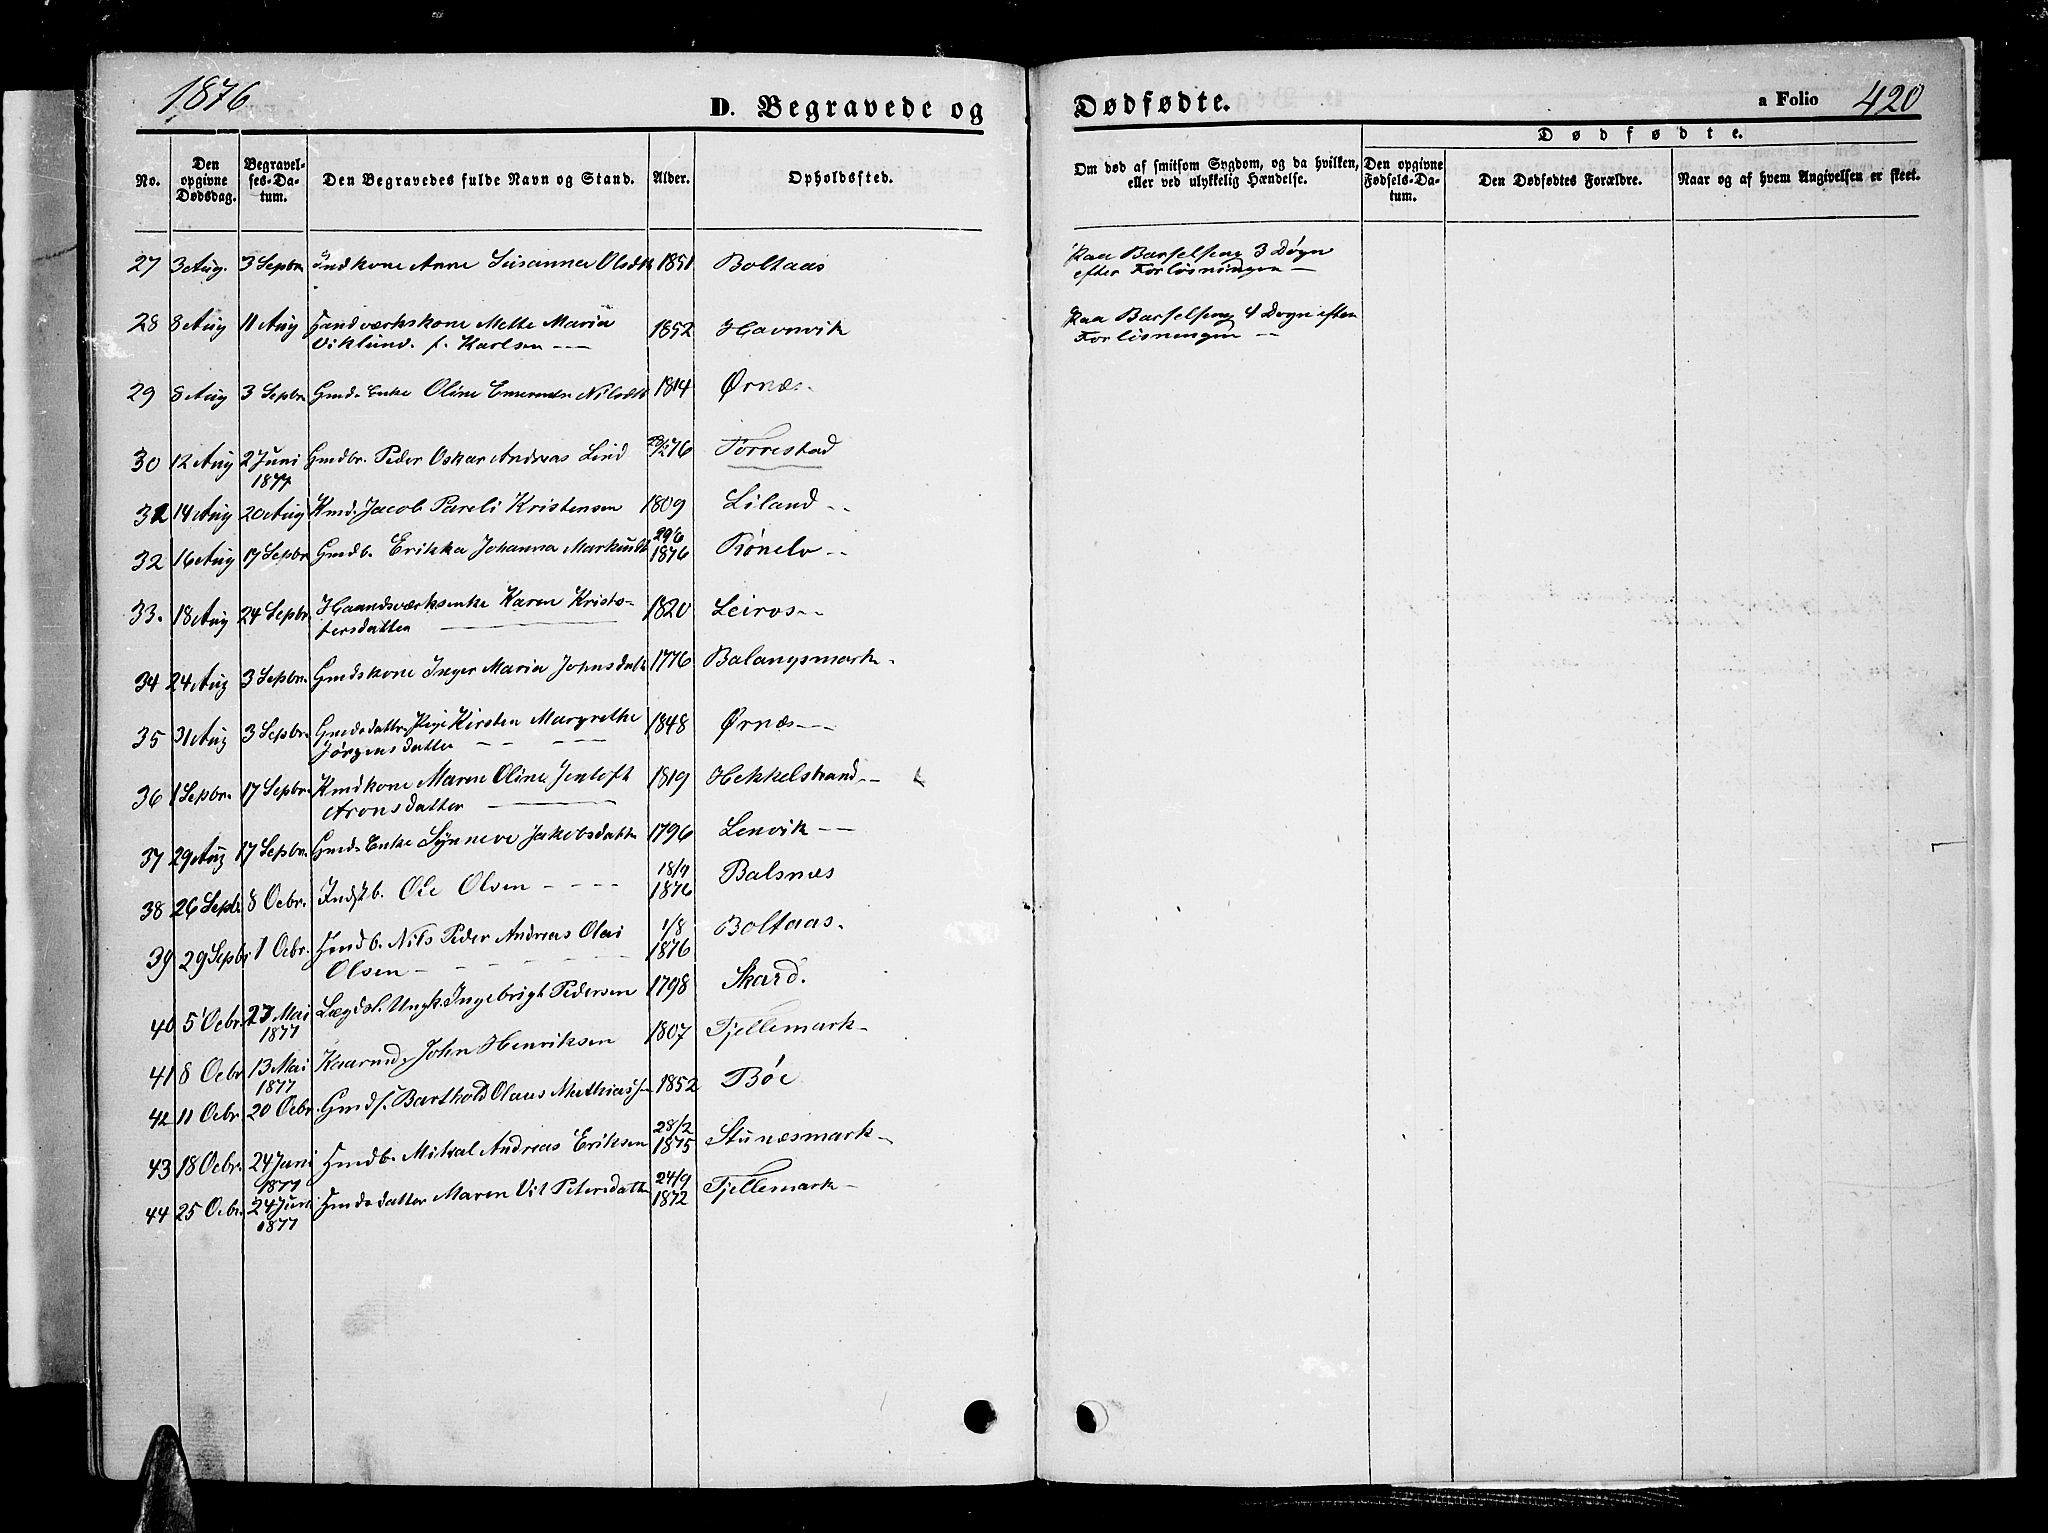 1876
D. Begravede og Dødfødte.
a Folio 420
No.
Den opgivne Dødsdag.
Begravelses-Datum.
Den Begravedes fulde Navn og Stand.
Alder.
Opholdssted.
Om død af smitsom Sygdom, og da hvilken, eller ved ulykkelig Hændelse.
Dødfødte.
Den opgivne Fødsels-Datum.
Den Dødfødtes Forældre.
Naar og af hvem Angivelsen er skeet.
27 3 Aug. 3 Sepbr. Indkone Anne Susanna Olsdtr 1851 Boltaas Paa Barselseng 3 Døgn
efter Forløsningen —
28 8 Aug 11 Aug Handværkskone Mette Maria 1852 Havnvik Paa Barselseng 4 Døgn efter
Viklund. f. Karlsen --- Forløsningen —
29 8 Aug 3 Sepbr. Gmds Enke Oline Nilsdtr 1814 Ørnæs-
30 12 Aug 2 Juni Gmdbr. Peder Oskar Andreas Lind 76 Forrestad
1877
31 14 Aug 20 Aug Kmd. Jacob Pareli Kristensen 1809 Liland --
29/6
32 16 Aug 17 Sepbr Gmdb. Erikka Johanna 1876
33. 18 Aug 24 Sepbr. Haandsværksenke Karen Kristo- 1820 Leiros--
fersdatter
34 24 Aug 3 Sepbr. Gmdskone Inger Maria Johnsdatt 1776 Balangsmark-
35 31 Aug 3 Sepbr. Gmdsdatter, Pige Kirsten Margrethe 1848 Ørnæs--
Jørgensdatter -- ---
36 1 Sepbr. 17 Sepbr. Kmdkone Maren Oline Jentoft 1819 Hekkelstrand--
Aronsdatter
37 29 Aug 17 Sepbr. Gmds Enke Synneve Jakobsdattr 1796 Lenvik --
18/9
38 26 Sepbr 8 Ocbr. Indstb. Ole Olsen ---- 1876 Balsnes
1/8
39 29 Sepbr 1 Ocbr. Gmdb. Nils Peder Andreas Olai 1876 Boltaas.
Olsen - - - -
40 5 Ocbr. 27 Mai Lægdsl. Ungk. Ingebrigt Pedersen 1798 Skard.
1877
41 8 Ocbr 13 Mai Kaarmd. John Henriksen 1807 Fjellemark-
1877
42 11 Ocbr. 20 Ocbr. Gmds. Barthold Olaus Mathiassen 1852 Bøe
28/2
43 18 Ocbr. 24 Juni Gmdb. Mikal Andreas Eriksen 1875 Stunesmark-
1877
24/9
44 25 Ocbr. 24 Juni Gmdsdatter Maren Petersdattr 1872 Fjellemark-
1877